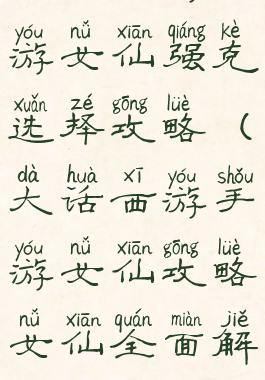 yóu nǚ xiān qiáng kè
游女仙强克
xuǎn zé gōng lüè
选择攻略（
dà huà xī yóu shǒu
大话西游手
yóu nǚ xiān gōng lüè
游女仙攻略
nǚ xiān quán miàn jiě
女仙全面解